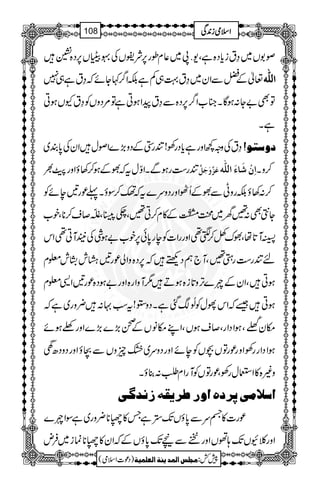 اسلامی زندگی 108
صوبوں میں دق زیادہ ہے، یو۔ پی میں عام طور پر شریفوں کی بہو بیٹیاں پردہ نشین ہیں
اللہ تعالیٰ کے فضل سے ان میں دق بہت ہی کم ہے بلکہ اگر کہا جائے کہ دق ہے ہی نہیں
تو بھی بے جا نہ ہوگا۔ جناب اگر پردہ سے دق پیدا ہوتی ہے تو مردوں کو دق کیوں ہوتی
ہے۔
دوستو! دق کی وجہ کچھ اور ہے یاد رکھو! تندرستی کے دو بڑے اصول ہیں ان کی پابندی
کرو۔ اِنْ شَآءَ اللہ عَزَّوَجَلَّ تندرست رہوگے۔ اوّل یہ کہ بھوک کے وقت کھاؤ اور پیٹ بھر
کر نہ کھاؤ بلکہ روٹی سے بھوکے اُٹھو اور دوسرے یہ کہ تھک کر سوؤ۔ پہلے عورتیں چائے کو جانتی
بھی نہ تھیں گھر میں محنت مشقت کے کام کرتی تھیں، چکی پیسنا، غلہ صاف کرنا، خوب
پسینہ آتا تھا، بھوک کھل کر لگتی تھی اور رات کو چارپائی پر خوب بے ہوشی کی نیند آتی تھی اس
لئے تندرست رہتی تھیں، آج ہم دیکھتے ہیں کہ پردہ والی عورتیں ہشاش بشاش معلوم
ہوتی ہیں، ان کے چہرے تروتازہ ہوتے ہیں مگر آوارہ اور بے پردہ عورتیں ایسی معلوم
ہوتی ہیں جیسے کہ اس پھول کو لُو لگ گئی ہے۔ دوستو! یہ سب بہانہ ہیں، ہاں یہ ضروری ہے کہ
مکان کھلے، ہوادار، صاف ہوں، اپنے مکانوں کے صحن بڑے بڑے اور کھلے ہوئے
ہوادار رکھو اور عورتوں بچوں کو چائے اور دوسری خشک چیزوں سے بچاؤ اور دودھ گھی
وغیرہ کا استعمال رکھو، عورتوں کو آرام طلب نہ بناؤ۔
اسلامی پردہ اور طریقہ زندگی
عورت کا جسم سر سے پاؤں تک ستر ہے جس کا چھپانا ضروری ہے سوا چہرے
اور کلائیوں تک ہاتھوں اور ٹخنے سے نیچے تک پاؤں کے کہ ان کا چھپانا نماز میں فرض
پیش کش: مجلس المدینة العلمیة (دعوت اسلامی)